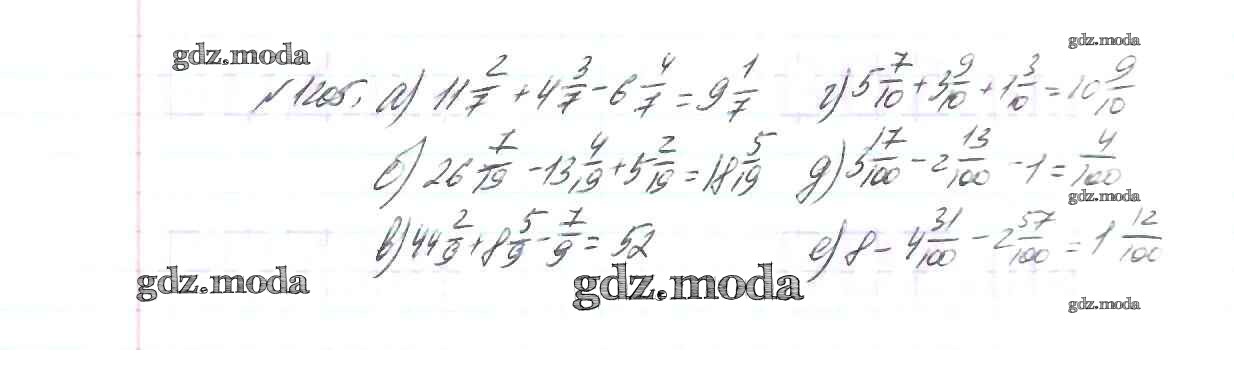 gdz.moda
gdz.moda
№1205, а) 11 2/7 + 4 3/7 - 6 4/7 = 9 1/7
г) 5 7/10 + 3 9/10 + 1 3/10 = 10 9/10
б) 26 7/19 - 13 4/19 + 5 2/19 = 18 5/19
д) 3 17/100 - 2 13/100 - 1 = 4/100
gdz.moda
в) 44 2/9 + 8 5/9 - 7/9 = 52
е) 8 - 4 31/100 - 2 57/100 = 1 12/100
gdz.moda
gdz.moda
gdz.moda